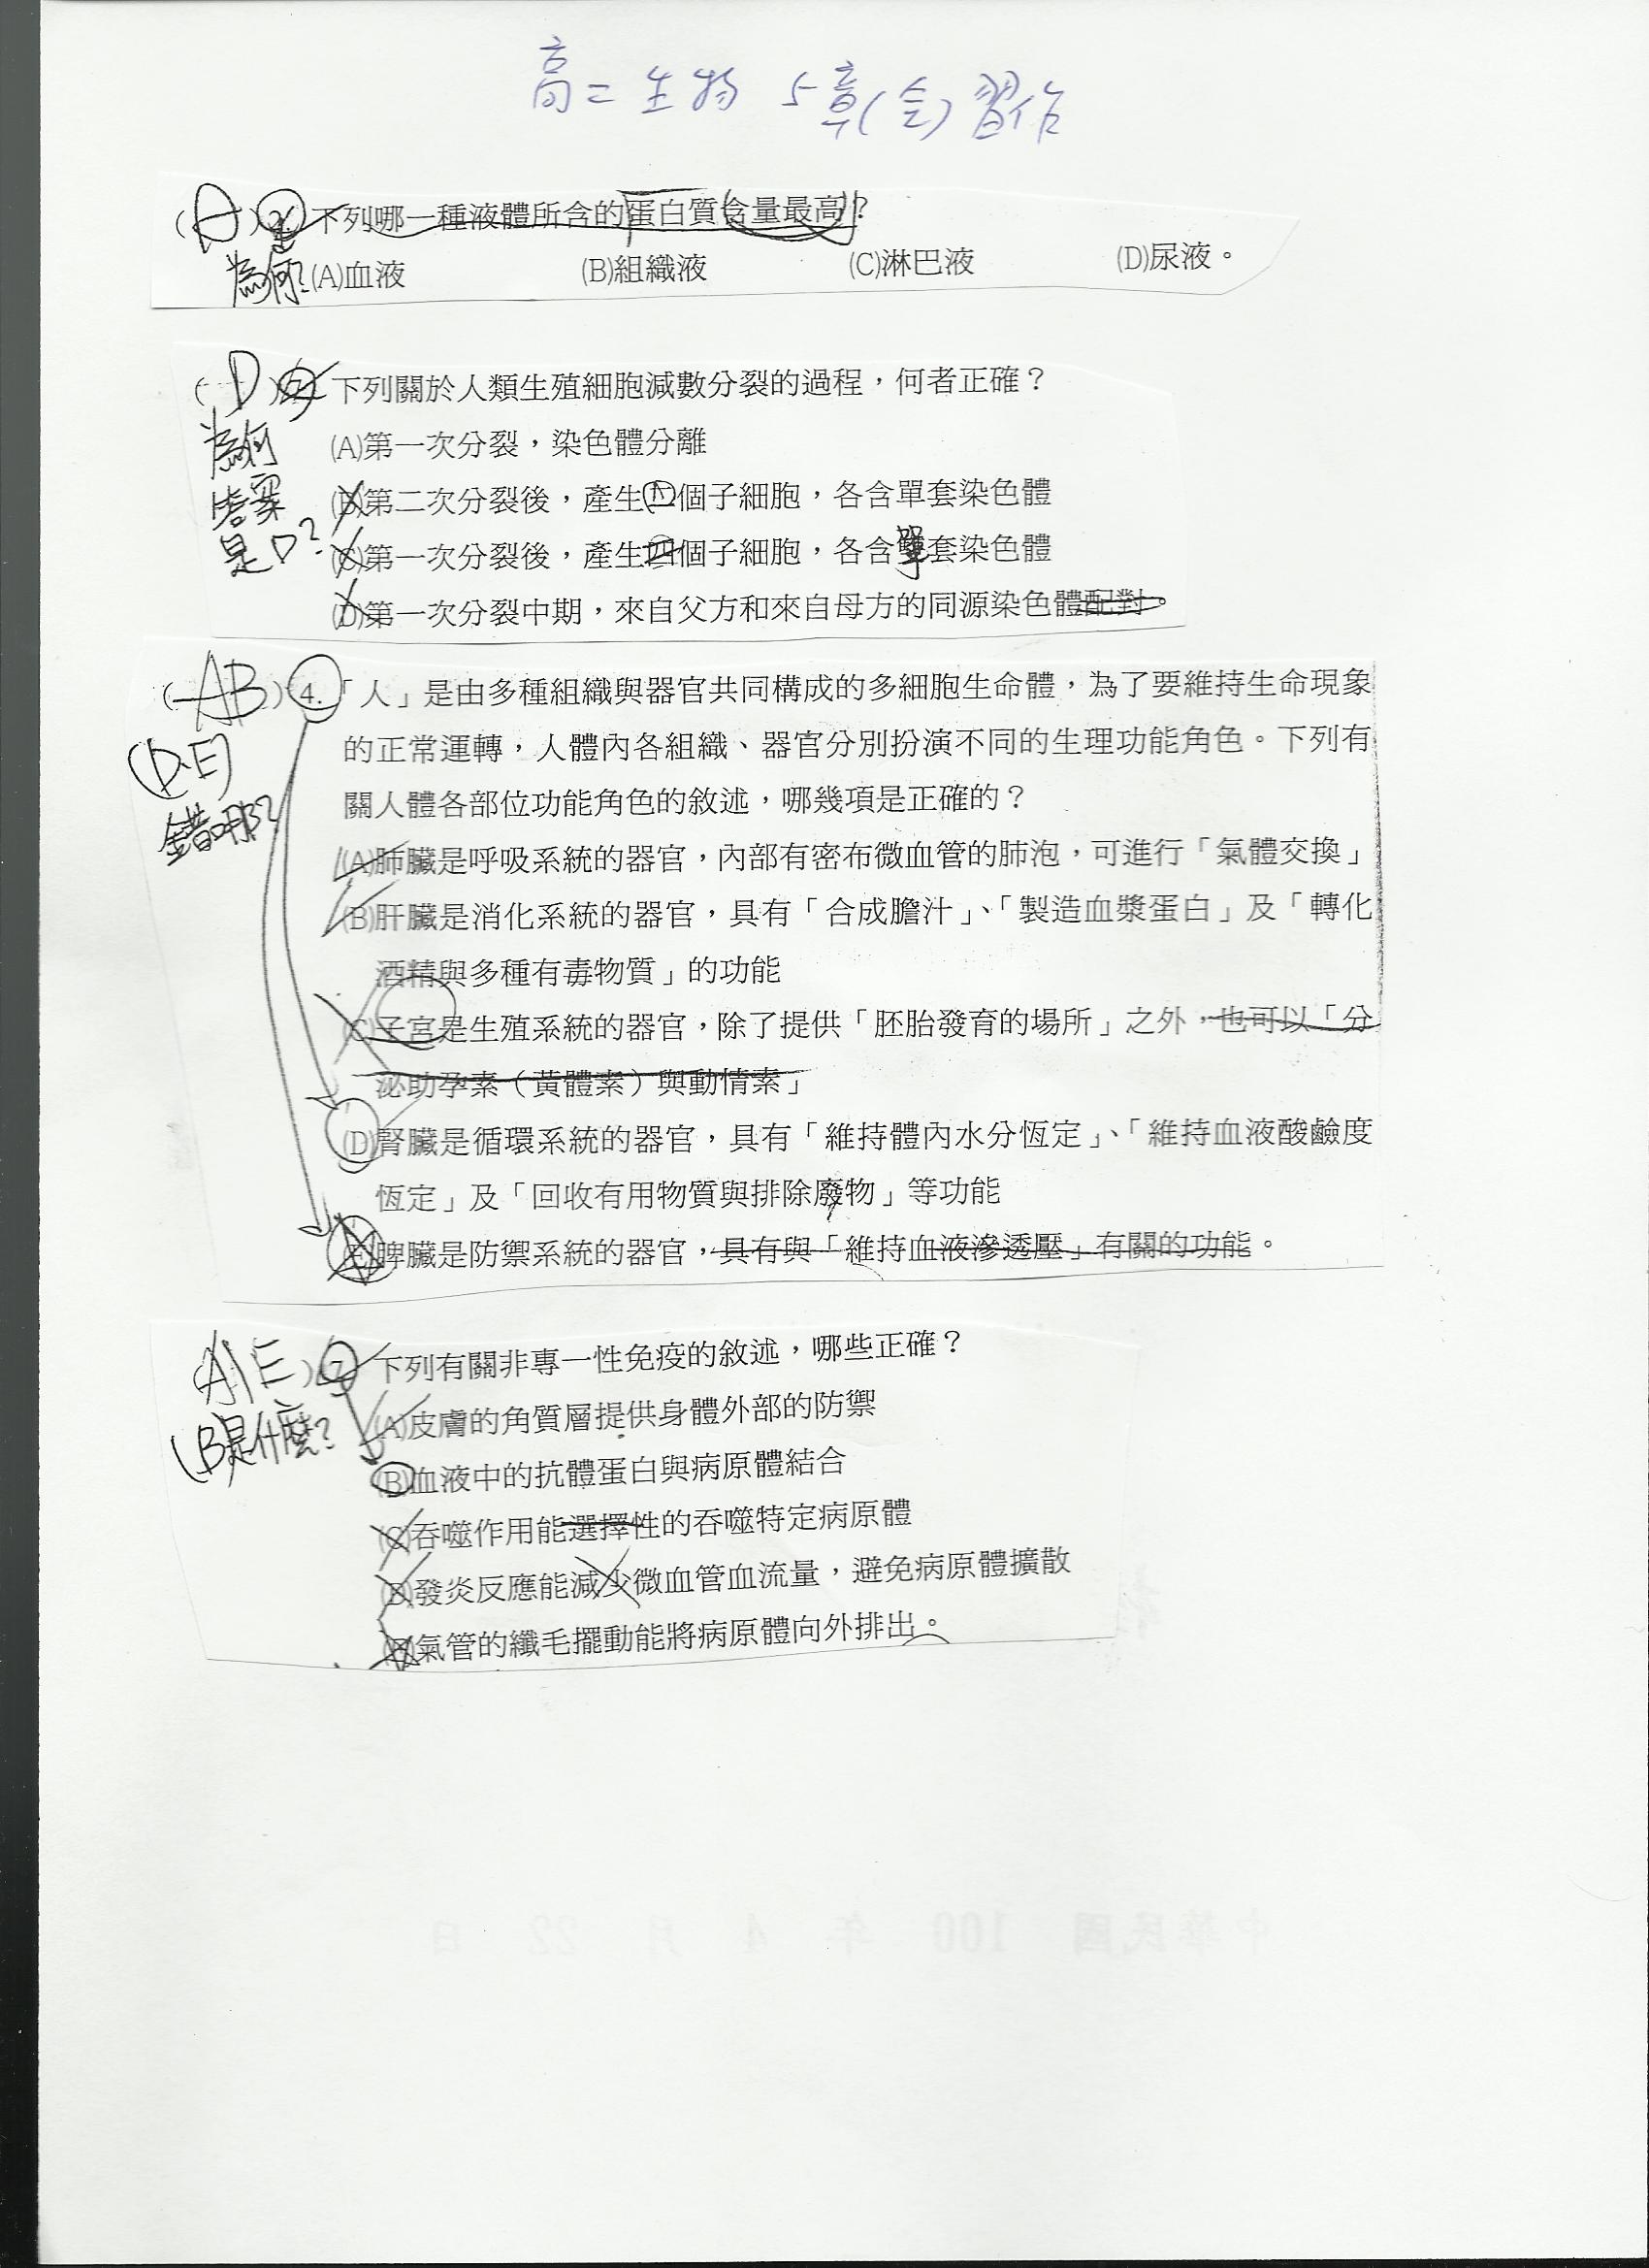 高二生物 5章(全)習作
(A)2. 下列哪一種液體所含的蛋白質含量最高?
為何? (A)血液 (B)組織液 (C)淋巴液 (D)尿液。
(D) 下列關於人類生殖細胞減數分裂的過程,何者正確?
為何 (A)第一次分裂,染色體分離
答案 (B)第二次分裂後,產生個子細胞,各含單套染色體
是D? (C)第一次分裂後,產生四個子細胞,各含單套染色體
(D)第一次分裂中期,來自父方和來自母方的同源染色體配對。
(AB)4.「人」是由多種組織與器官共同構成的多細胞生命體,為了要維持生命現象
(D、E) 的正常運轉,人體內各組織、器官分別扮演不同的生理功能角色。下列有
錯哪? 關人體各部位功能角色的敘述,哪幾項是正確的?
(A)肺臟是呼吸系統的器官,內部有密布微血管的肺泡,可進行「氣體交換」
(B)肝臟是消化系統的器官,具有「合成膽汁」、「製造血漿蛋白」及「轉化
酒精與多種有毒物質」的功能
(C)子宮是生殖系統的器官,除了提供「胚胎發育的場所」之外,也可以「分
泌助孕素(黃體素)與動情素」
(D)腎臟是循環系統的器官,具有「維持體內水分恆定」、「維持血液酸鹼度
恆定」及「回收有用物質與排除廢物」等功能
(E)脾臟是防禦系統的器官,具有與「維持血液滲透壓」有關的功能。
(AE)7. 下列有關非專一性免疫的敘述,哪些正確?
(B是什麼? (A)皮膚的角質層提供身體外部的防禦
(B)血液中的抗體蛋白與病原體結合
(C)吞噬作用能選擇性的吞噬特定病原體
(D)發炎反應能減少微血管血流量,避免病原體擴散
(E)氣管的纖毛擺動能將病原體向外排出。
中華民國 100 年 4 月 22 日